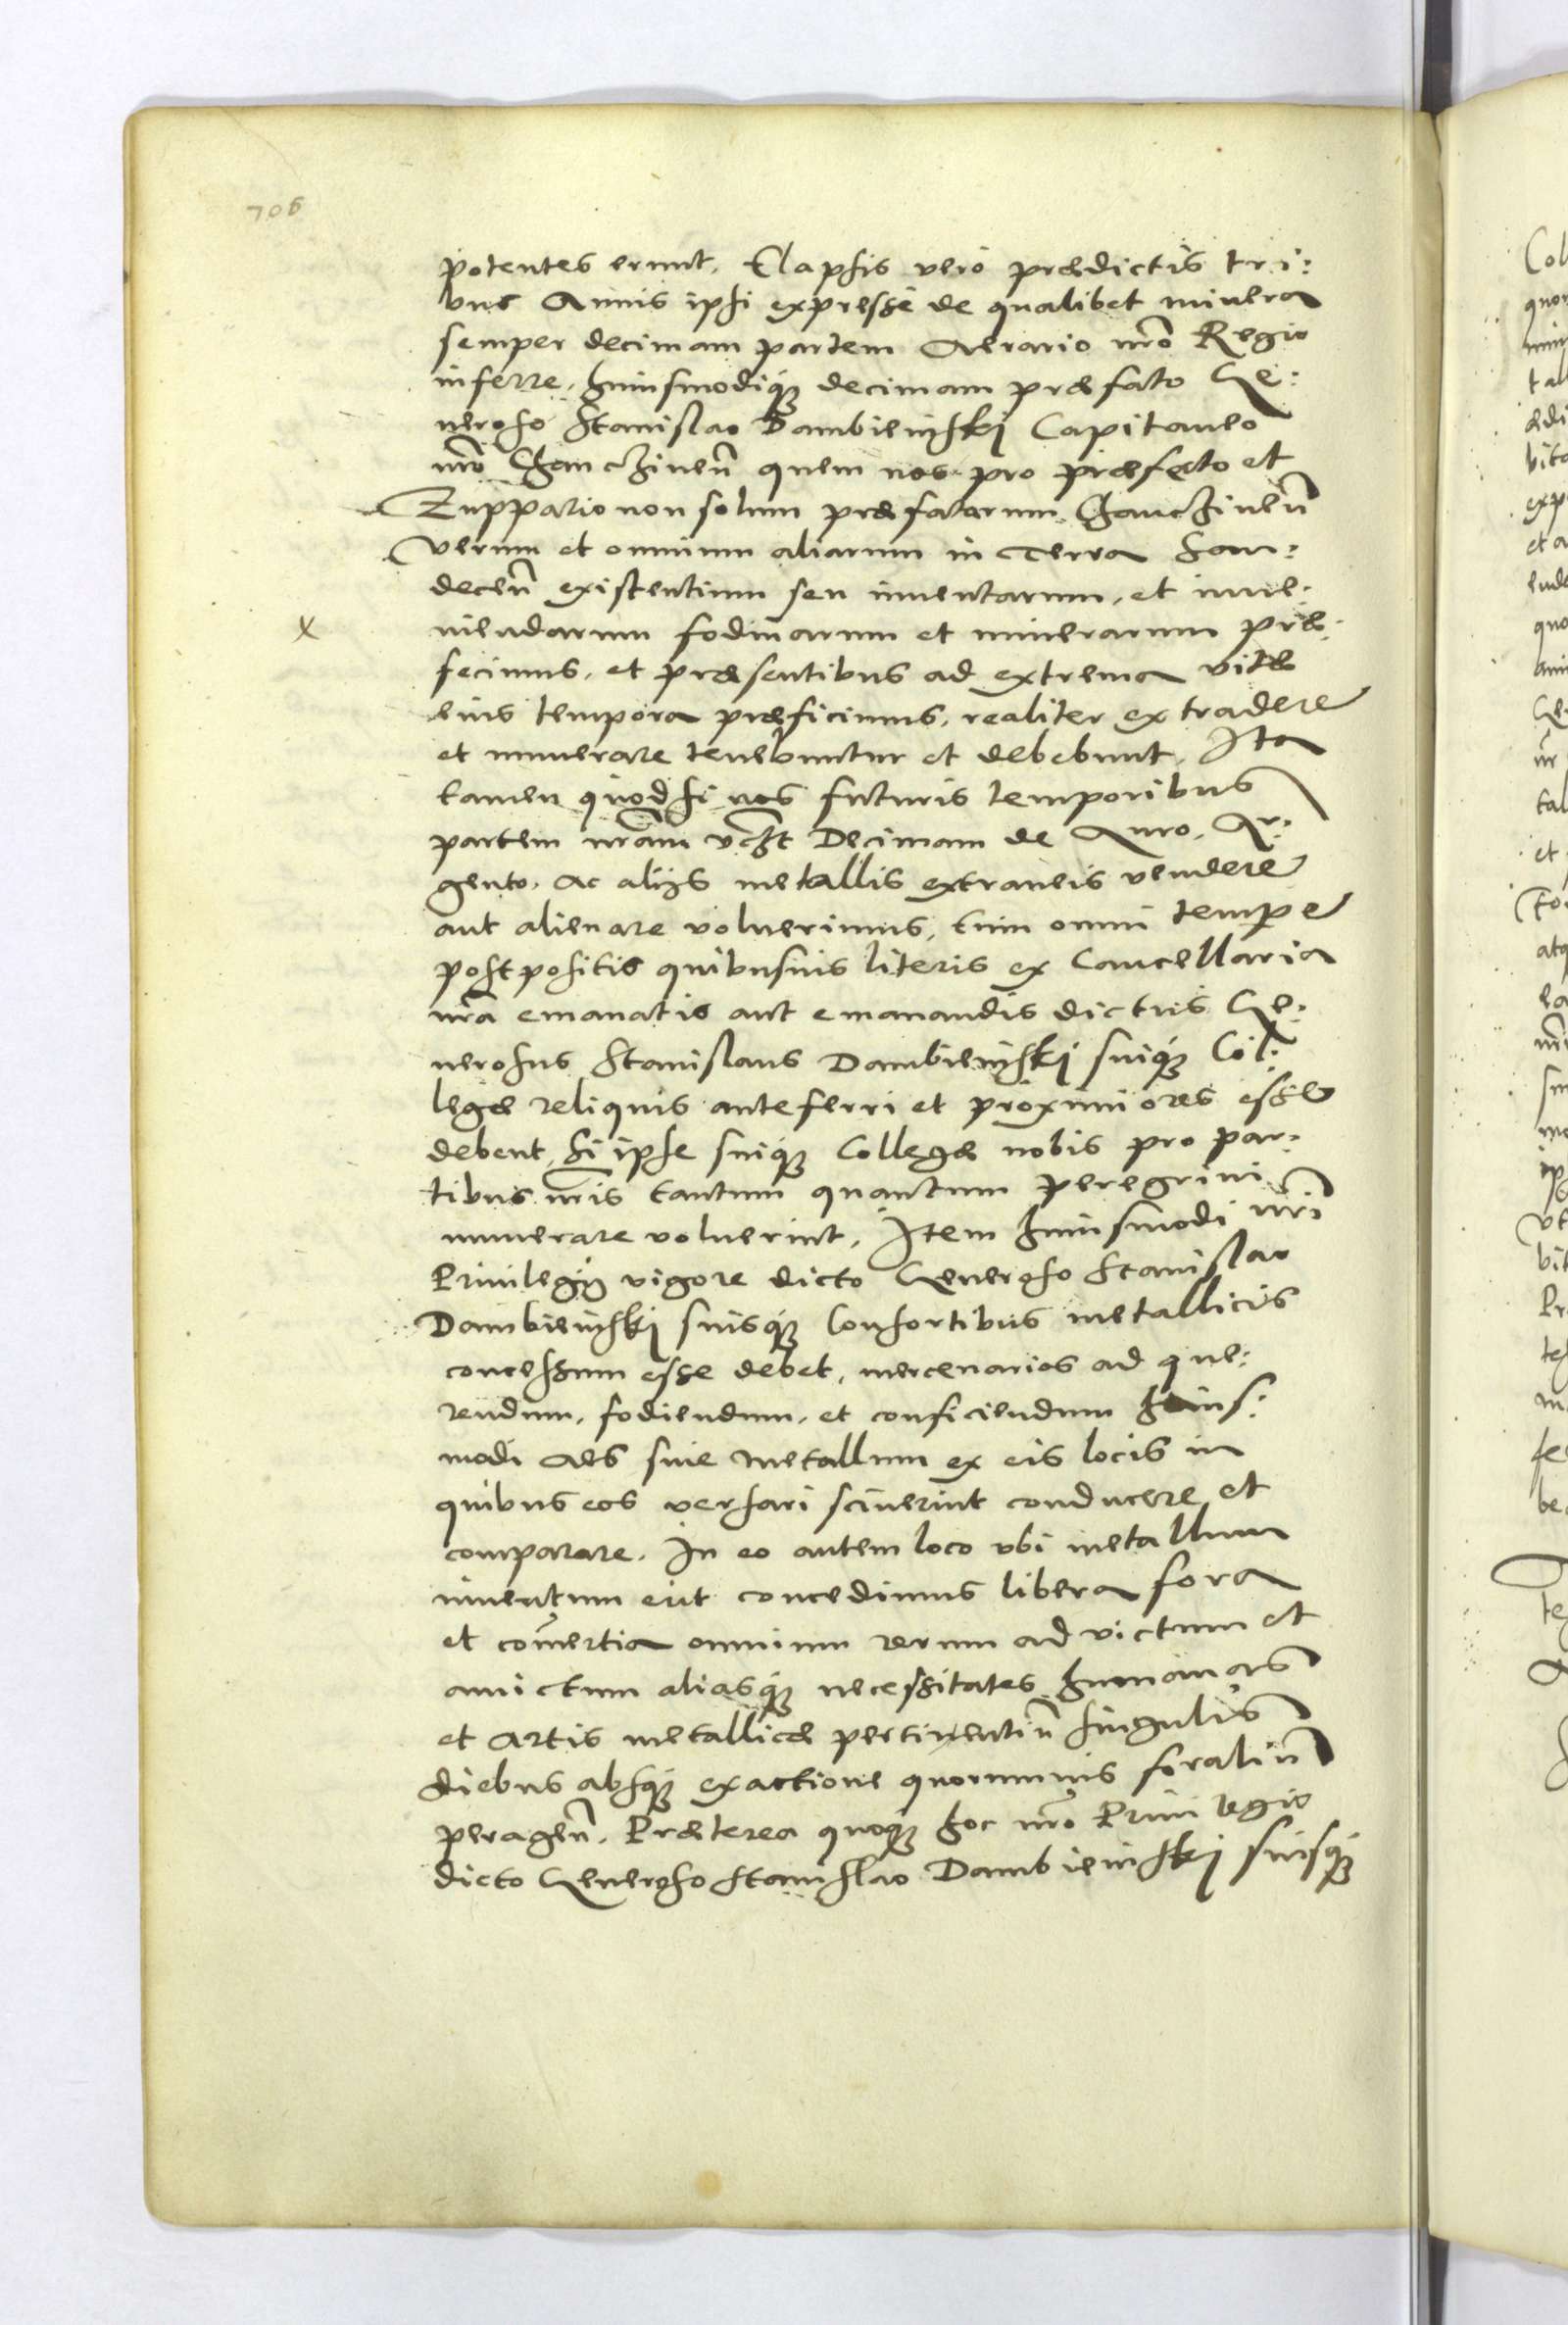 706
potentes erunt. Elapsis vero prædictis tri:
bus Annis ipsi expresse de qualibet minera
semper decimam partem Aerario nr̃o Regio
inferre, huiusmodiq̃ꝫ decimam præfato Ge:
neroso Stanislao Dambieinskj Capitaneo
nr̃o Chanczinen̄ quem nos pro præfecto et
Zuppario non solum præfatarum Chanczinen̄
Verum et omnium aliarum in Terra San:
decen̄ existentium seu inuentarum, et inue:
niendarum fodinarum et minerarum præ:
x
fecimus, et præsentibus ad extrema vitæ
eius tempora præficimus, realiter extradere
et numerare tenebuntur et debebunt, Ita
tamen quod si nos futuris temporibus
partem nr̃am Decimam de Auro, Ar:
gento, ac alijs metallis extraneis vendere
aut alienare voluerimus, tum omni tempore
postpositis quibusuis literis ex Cancellaria
nr̃a emanatis aut emanandis dictus Ge:
nerosus Stanislaus Dambieinskj suiq̃ꝫ Col:
legæ reliquis anteferri et proximiores esse
debent, si ipse suiq̃ꝫ Collegæ nobis pro par:
tibus nr̃is tantum quantum peregrini
numerare voluerint, Item huiusmodi nr̃i
Priuilegij vigore dicto Generoso Stanislao
Dambieinskj suisq̃ꝫ Consortibus metallicis
concessum esse debet, mercenarios ad que:
rendum, fodiendum, et conficiendum huius:
modi Aes siue metallum ex eis locis in
quibus eos versari sciuerint conducere et
comparare. In eo autem loco vbi metallum
inuentum erit concedimus libera fora
et com̄ertia omnium rerum ad victum et
amictum aliasq̃ꝫ necessitates humanas
et artis metallicæ pertinentiū singulis
diebus absq̃ꝫ exactione quorumuis foraliū
peragen̄. Præterea quoq̃ꝫ hoc nr̃o Priuilegio
dicto Generoso Stanislao Dambieinskj suisq̃ꝫ